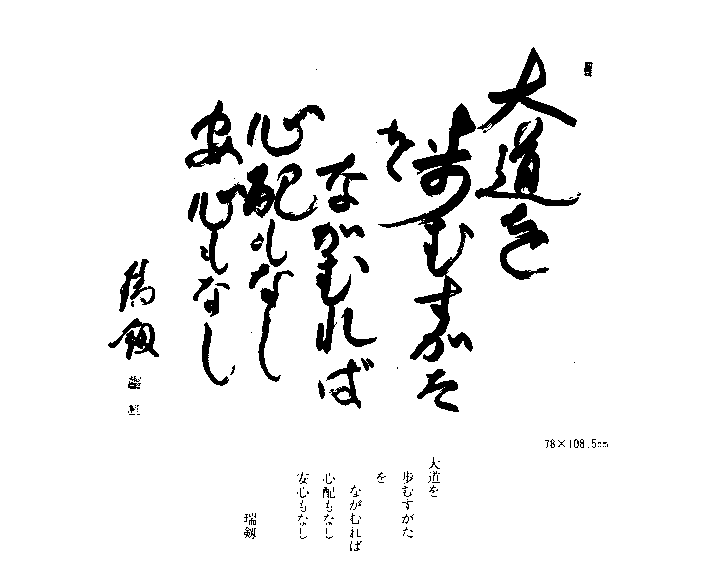 大道を
歩むすがた
を
ながむれば
心配もなし
安心もなし
瑞剱
78×108.5cm
大道を
歩むすがた
を
ながむれば
心配もなし
安心もなし
瑞剱